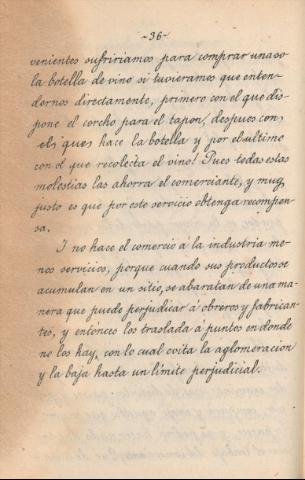 -36-
venientes sufririamos para comprar una so
la botella de vino si tuvieramos que enten-
dernos directamente, primero con el que dis-
pone el corcho para el tapon, despues con,
el que hace la botella y por el ultimo
con el que recolecta el vino! Pues todas estas
molestias las ahorra el comerciante, y muy
justo es que por este servicio obtenga recompen-
sa.
I no hace el comercio á la industria me-
nos servicios, porque cuando sus productos se
acumulan en un sitio, se abaratan de una ma-
nera que puede perjudicar á obreros y fabrican-
tes, y entonces los traslada á puntos en donde
no los hay, con lo cual evita la aglomeracion
y la baja hasta un límite perjudicial.